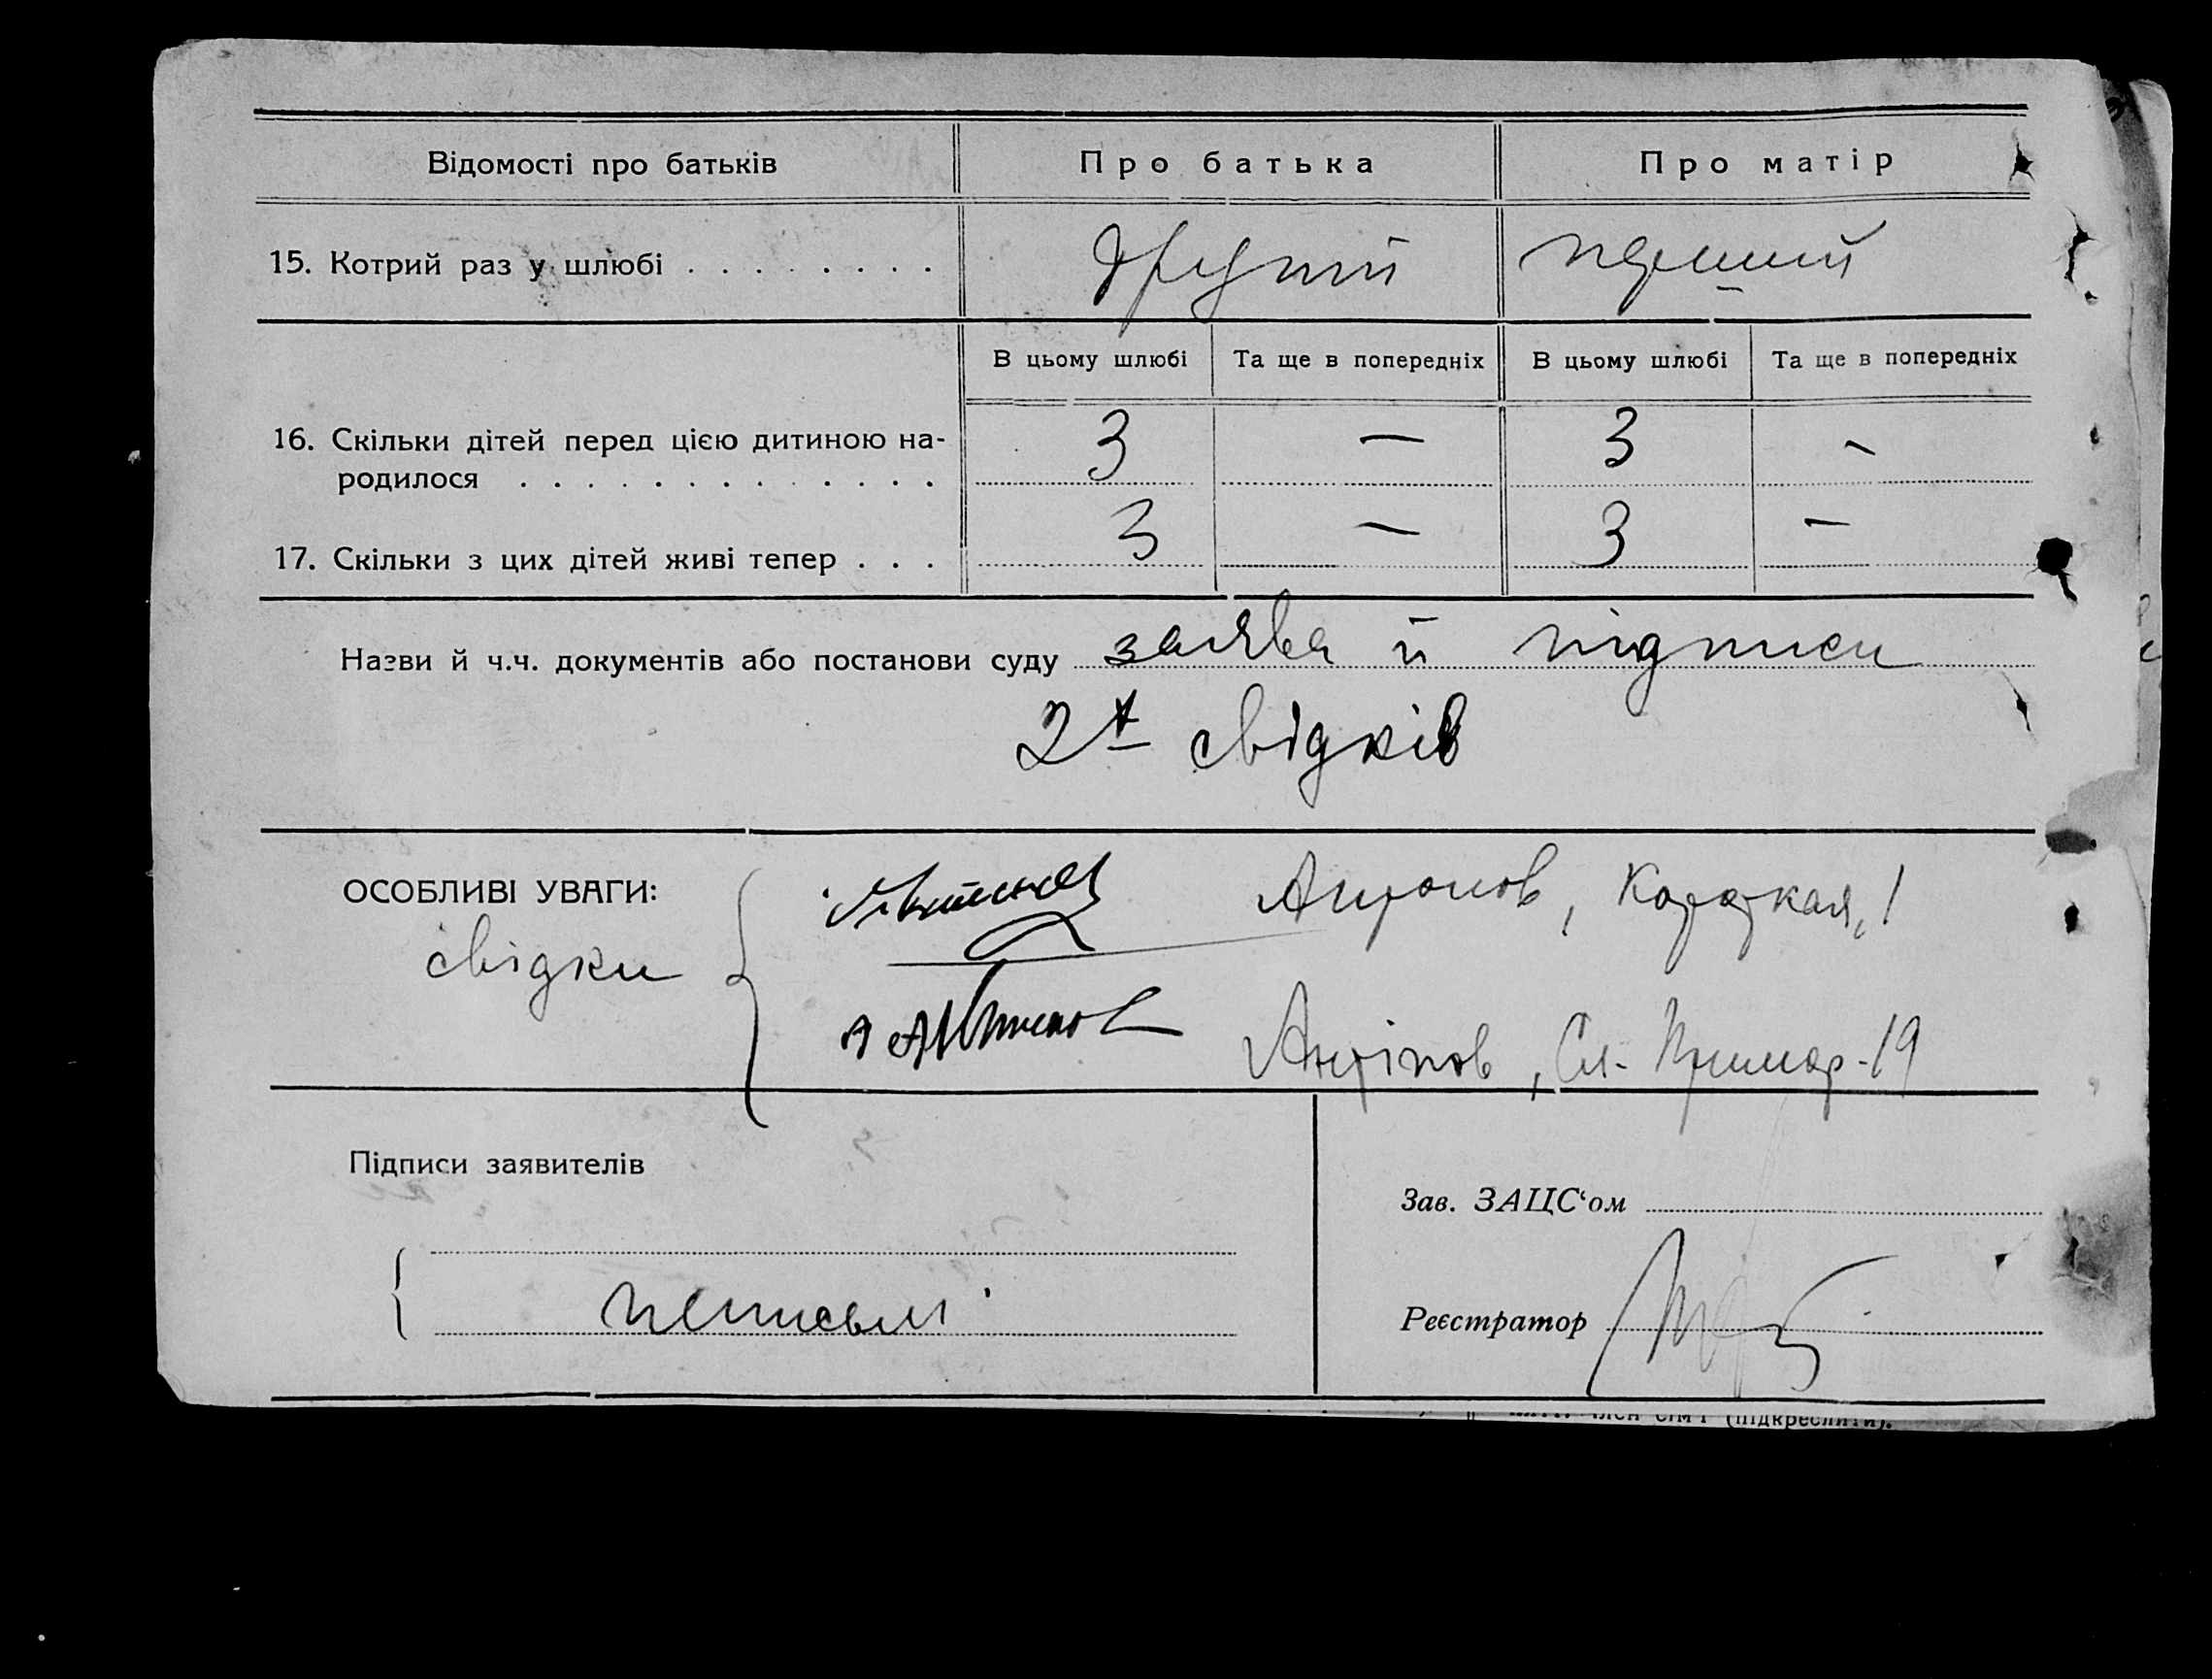 Відомості про батьків Про батька Про матір
15. Котрий раз у шлюбі . . . . . . . . другий перший
В цьому шлюбі Та ще в попередніх В цьому шлюбі Та ще в попередніх
16. Скільки дітей перед цією дитиною на- 3 — 3 —
родилося . . . . . . . . . . . . .
17. Скільки з цих дітей живі тепер . . . 3 — 3 —
Назви й ч.ч. документів або постанови суду заява й підписи
2х свідків
ОСОБЛИВІ УВАГИ:
Короткая, 1
свідки
Антіпов, Сл.
19
Підписи заявителів
Зав. ЗАЦС‘ом
неписьмені
Реєстратор
член сім'ї (підкреслити).